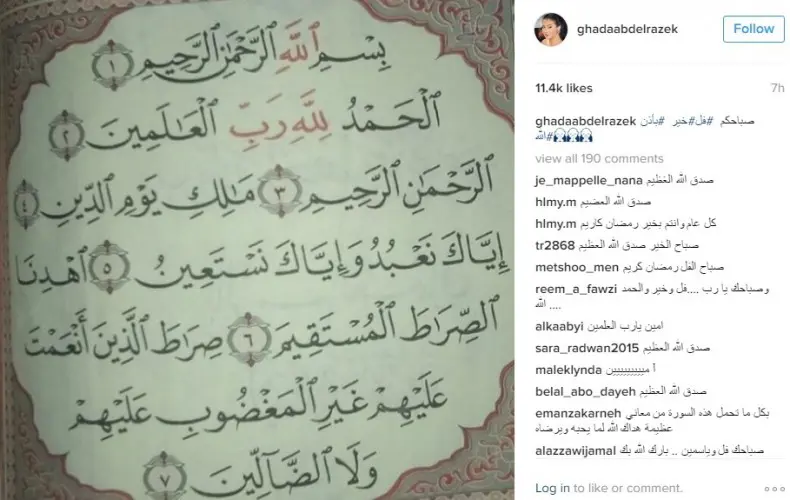 بِسْمِ ٱللَّهِ ٱلرَّحْمَٰنِ ٱلرَّحِيمِ ۝١
ٱلْحَمْدُ لِلَّهِ رَبِّ ٱلْعَٰلَمِينَ ۝٢
ٱلرَّحْمَٰنِ ٱلرَّحِيمِ ۝٣ مَٰلِكِ يَوْمِ ٱلدِّينِ ۝٤
إِيَّاكَ نَعْبُدُ وَإِيَّاكَ نَسْتَعِينُ ۝٥ ٱهْدِنَا
ٱلصِّرَٰطَ ٱلْمُسْتَقِيمَ ۝٦ صِرَٰطَ ٱلَّذِينَ أَنْعَمْتَ
عَلَيْهِمْ غَيْرِ ٱلْمَغْضُوبِ عَلَيْهِمْ
وَلَا ٱلضَّآلِّينَ ۝٧
ghadaabdelrazek
Follow
11.4k likes 7h
ghadaabdelrazek صباحكم #فل#خير #بأذن
#الله
view all 190 comments
je_mappelle_nana صدق الله العظيم
hlmy.m صدق الله العضيم
hlmy.m كل عام وانتم بخير رمضان كاريم
tr2868 صباح الخير صدق الله العظيم
metshoo_men صباح الفل رمضان كريم
reem_a_fawzi وصباحك يا رب ....فل وخير والحمد
الله ....
alkaabyi امين يارب العلمين
sara_radwan2015 صدق الله العظيم
maleklynda أ مييييييييين
belal_abo_dayeh صدق الله العظيم
emanzakarneh بكل ما تحمل هذه السورة من معاني
عظيمة هداك الله لما يحبه ويرضاه
alazzawijamal صباحك فل وياسمين .. بارك الله بك
Log in to like or comment.